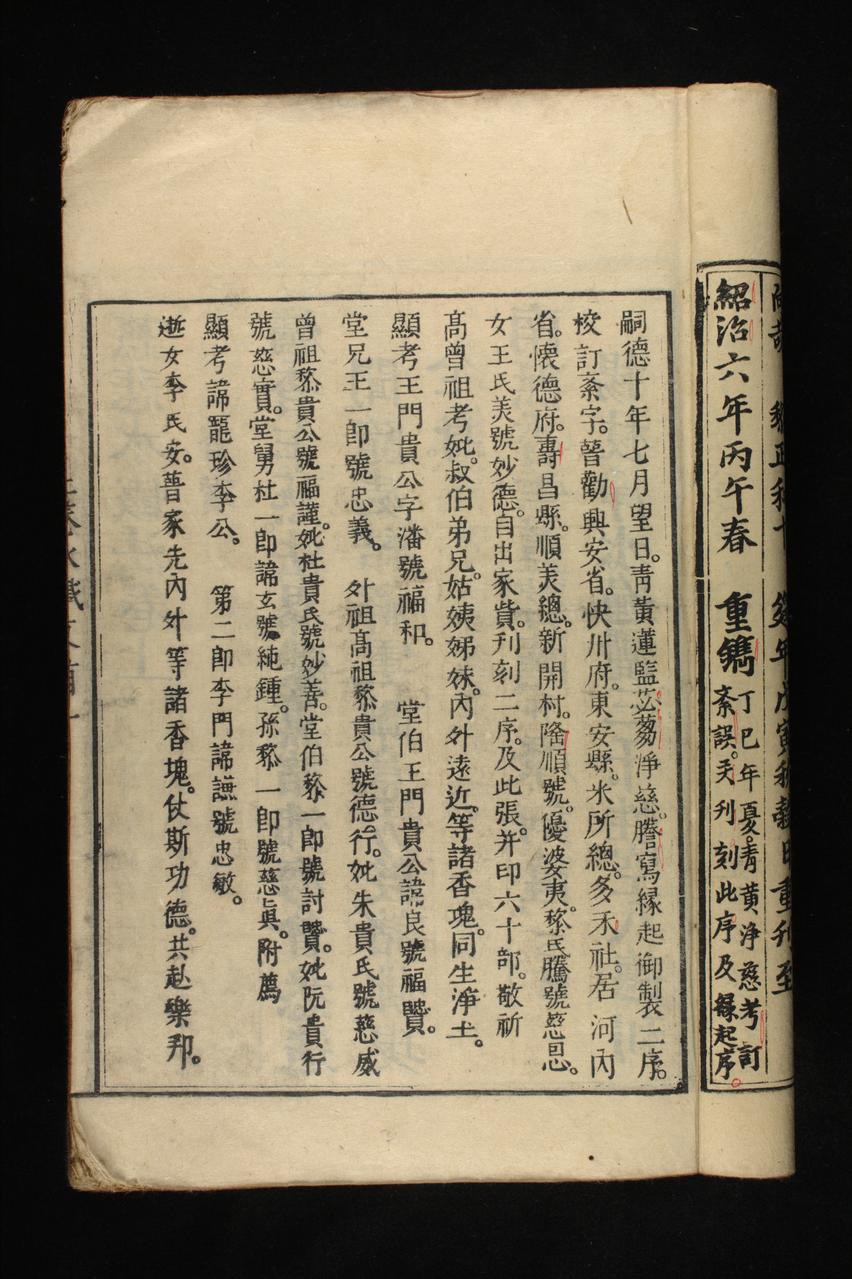 紹治六年丙午春 重鐫
丁巳年夏。青黃淨慈考訂
紊誤。天刊刻此序及緣起序。
嗣德十年七月望日。青黃蓮監苾蒭淨慈。謄寫緣起御製二序。
校訂紊字。普勸興安省。快州府。東安縣。米所總。多禾社。居河內
省。懷德府。壽昌縣。順美總。新開村。隆順號。優婆夷。黎氏騰號慈思。
女王氏美號妙德。自出家貲。刊刻二序。及此張。并印六十部。敬祈
高曾祖考妣。叔伯弟兄。姑姨姊妹。內外遠近。等諸香魂。同生淨土。
顯考王門貴公字潘號福和。 堂伯王門貴公諱良號福贒。
堂兄王一郎號忠義。 外祖高祖黎貴公號德行。妣朱貴氏號慈威
曾祖黎貴公號福謹。妣杜貴氏號妙善。堂伯黎一郎號討贒。妣阮貴行
號慈實。堂舅杜一郎諱玄號純鍾。孫黎一郎號慈眞。附薦
顯考諱寵珍李公。 第二郎李門諱謙號忠敏。
逝女李氏安。普家先內外等諸香塊。仗斯功德。共赴樂邦。